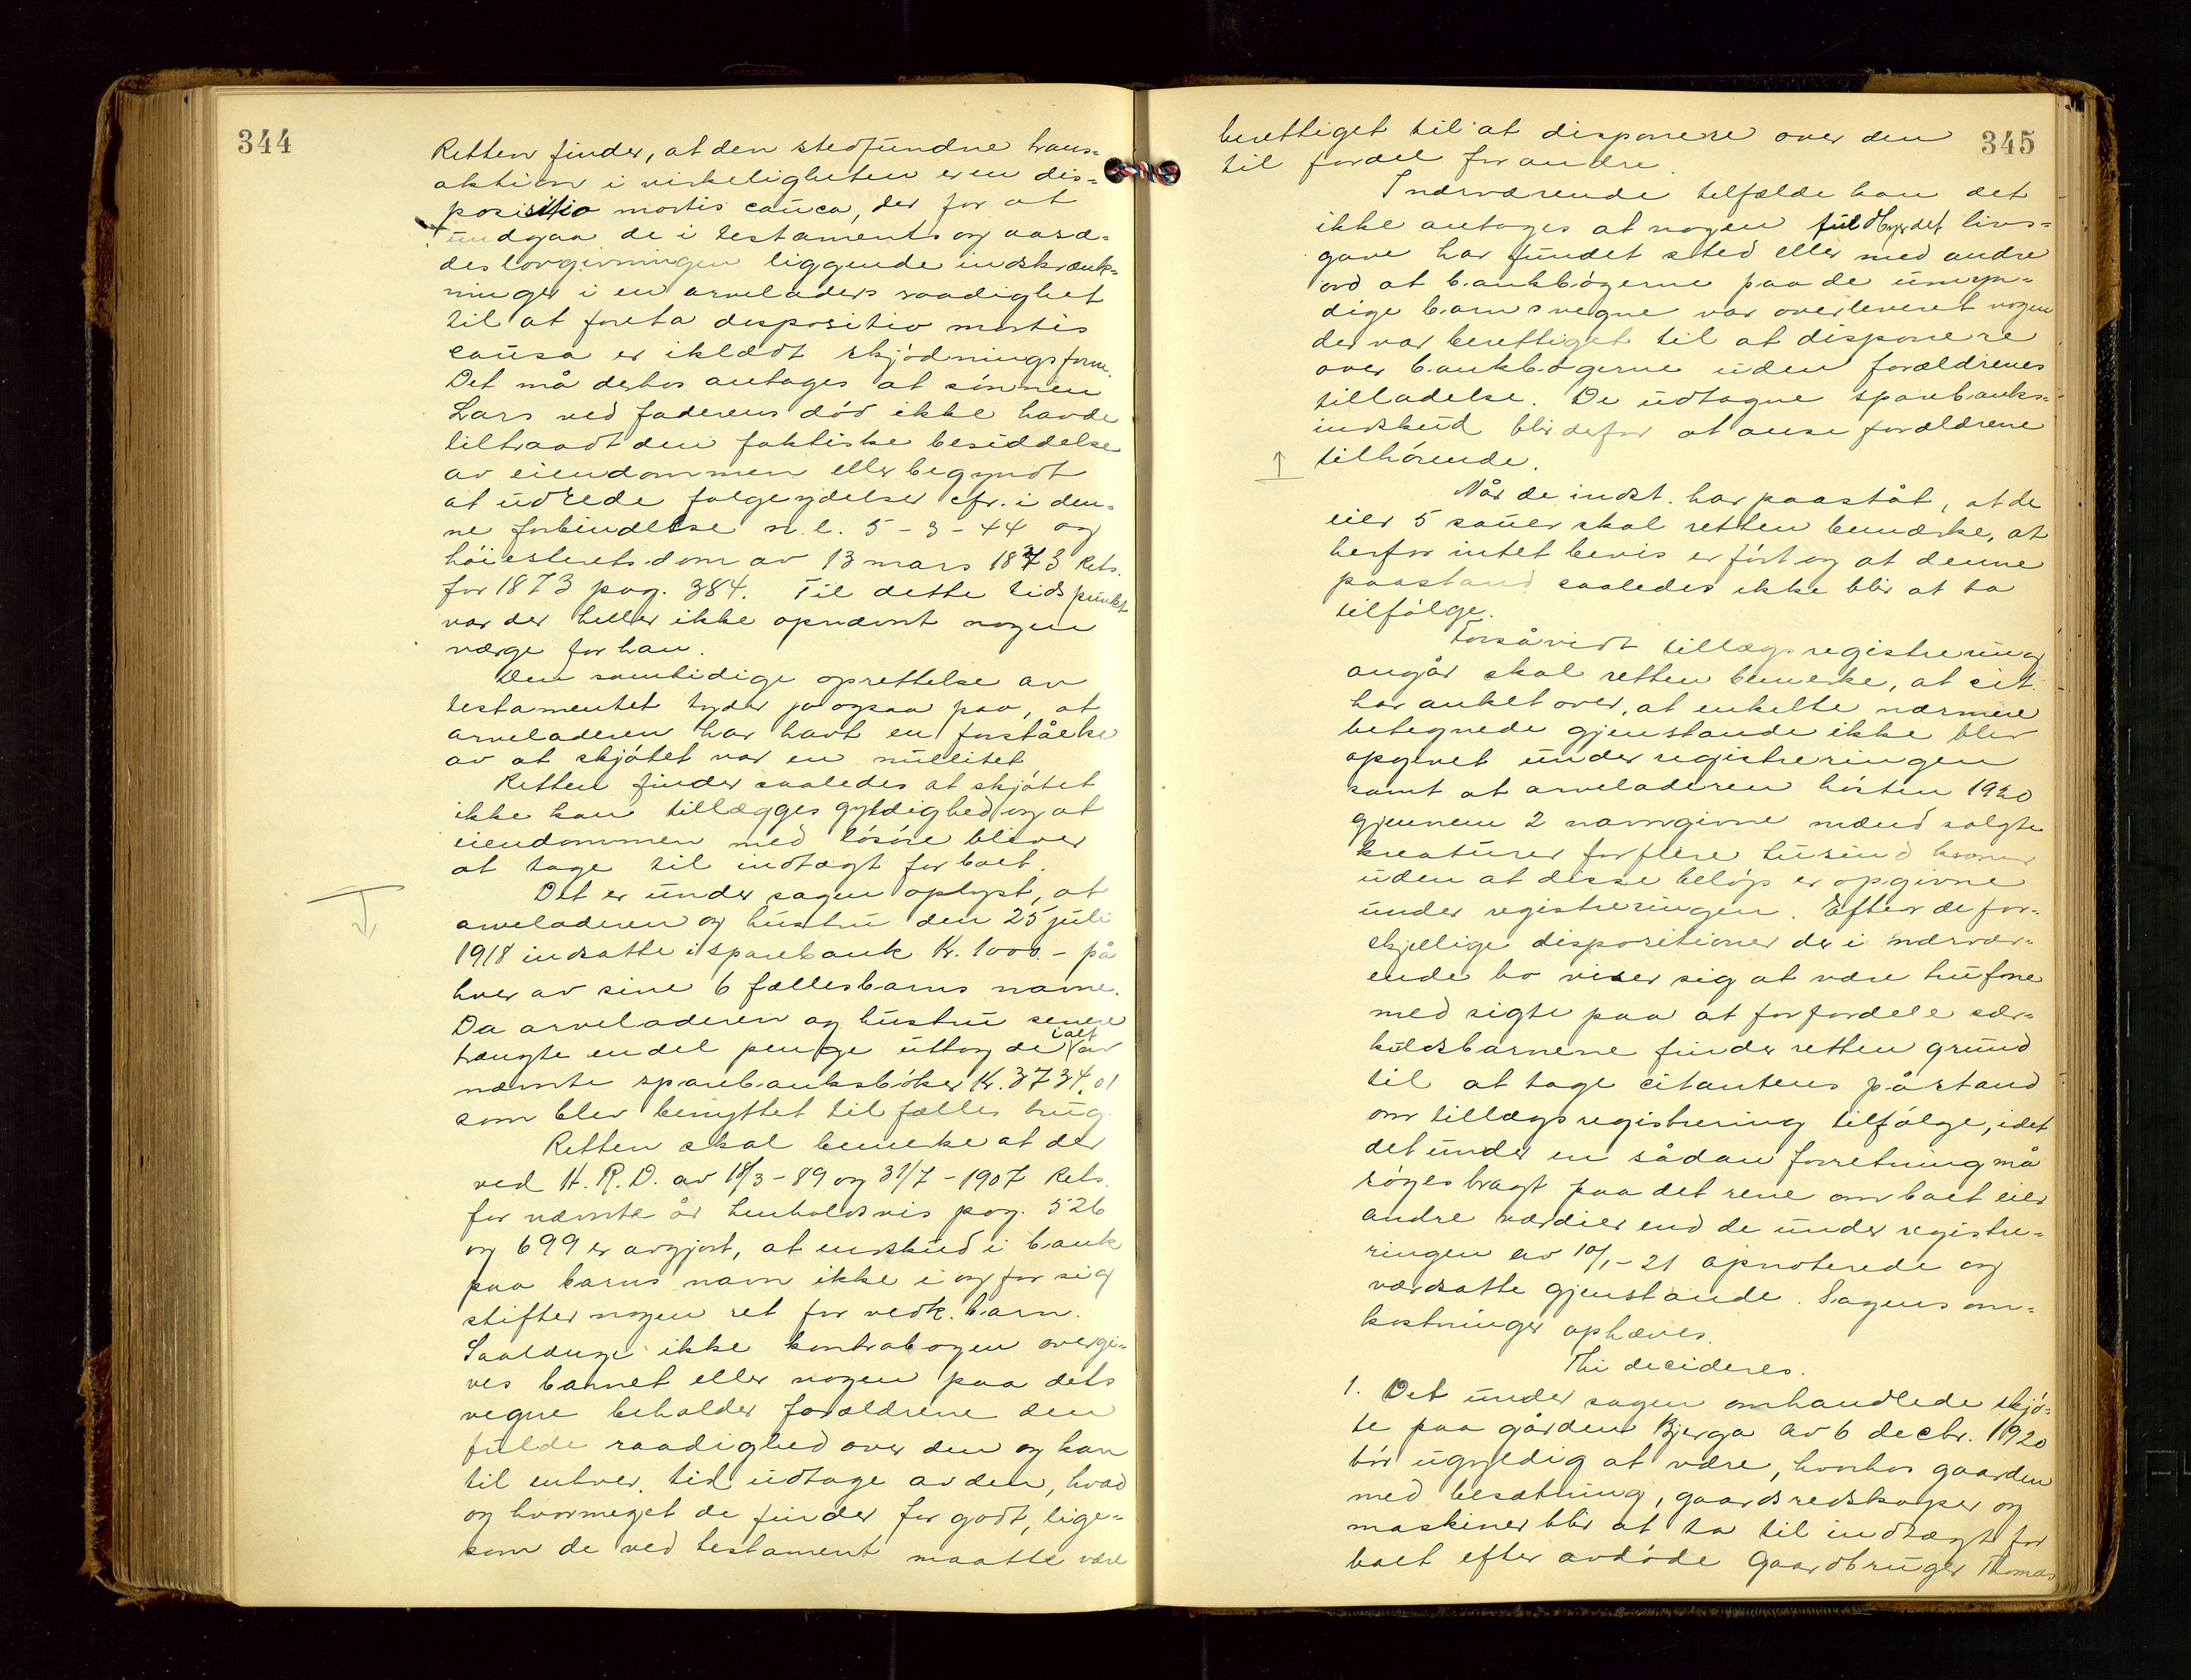 344
Retten finder, at den stedfundne trans=
aktion i virkeligheten er en dis=
positio mortis causa, der for at
undgaa de i testaments og aasæ=
deslovgivningen liggende indskrænk=
ninger i en arveladers raadighet
til at foreta dispositio mortis
causa er iklædt skjødningsform.
Det må derhos antages at sønnen
Lars ved faderens död ikke havde
tiltraadt den faktiske besiddelse
av eiendommen eller begyndt
at udrede følgeydelser cfr. i den=
ne forbindelse n. l. 5-3-44 og
höiesteretsdom av 13 mars 1873 Rets.
for 1873 pag. 384. Til dette tidspunkt
var der heller ikke opnævnt nogen
værge for han.
Den samtidige oprettelse av
testamentet tyder jo ogsaa paa, at
arveladeren har havt en forståelse
av at skjötet var en nullitet
Retten finder saaledes at skjötet
ikke kan tillægges gyldighed og at
eiendommen med lösöre bliver
at tage til indtægt for boet.
Det er under sagen oplyst, at
arveladeren og hustru den 25 juli
1918 indsatte i sparebank Kr. 1000.- på
hver av sine 6 fællesbarns navne.
Da arveladeren og hustru senere
trængte endel penge uttog de ialt av
nævnte sparebanksböker Kr. 3734.01
som blev benyttet til fælles brug.
Retten skal bemerke at der
ved H. R. D. av 18/3-89 og 31/7-1907 Rets.
for nævnte år henholdsvis pag. 526
og 699 er avgjort, at indskud i bank
paa barns navn ikke i og for sig
stifter nogen ret for vedk. barn.
Saalænge ikke kontrabogen overgi=
ves barnet eller nogen paa dets
vegne beholder forældrene den
fulde raadighed over den og kan
til enhver tid udtage av den, hvad
og hvormeget de finder for godt, lige=
som de ved testament maatte være
345
berettiget til at disponere over den
til fordel for andre.
I nærværende tilfælde kan det
ikke antages at nogen fuldbyrdet livs=
gave har fundet sted eller med andre
ord at bankbøgerne paa de umyn=
dige barns vegne var overleveret nogen
der var berettiget til at disponere
over bankbøgerne uden forældrenes
tilladelse. De udtagne sparebanks=
indskud blir defor at anse forældrene
tilhörende.
Når de indst. har paaståt, at de
eier 5 sauer skal retten bemærke, at
herfor intet bevis er fört og at denne
paastand saaledes ikke blir at ta
tilfölge.
Forsåvidt tillægsregistrering
angår skal retten bemerke, at cit.
har anket over, at enkelte nærmere
betegnede gjenstande ikke blev
opgivet under registreringen
samt at arveladeren hösten 1920
gjennem 2 navngivne mænd solgte
kreaturer for flere tusind kroner
uden at disse belöp er opgivne
under registreringen. Efter de for=
skjellige dispositioner der i nærvær=
ende bo viser sig at være trufne
med sigte paa at forfordele sær=
kuldsbarnene finder retten grund
til at tage citantens påstand
om tillægsregistrering tilfölge, idet
det under en sådan forretning må
söges bragt paa det rene om boet eier
andre værdier end de under registre=
ringen av 10/1-21 opnoterede og
værdsatte gjenstande. Sagens om=
kostninger ophæves.
Thi decideres.
1. Det under sagen omhandlede skjö=
te paa gården Bjerga av 6 decbr. 1920
bör ugyldig at være, hvorhos gaarden
med besætning, gaardsredskaper og
maskiner blir at ta til indtægt for
boet efter avdöde Gaardbruger Thomas